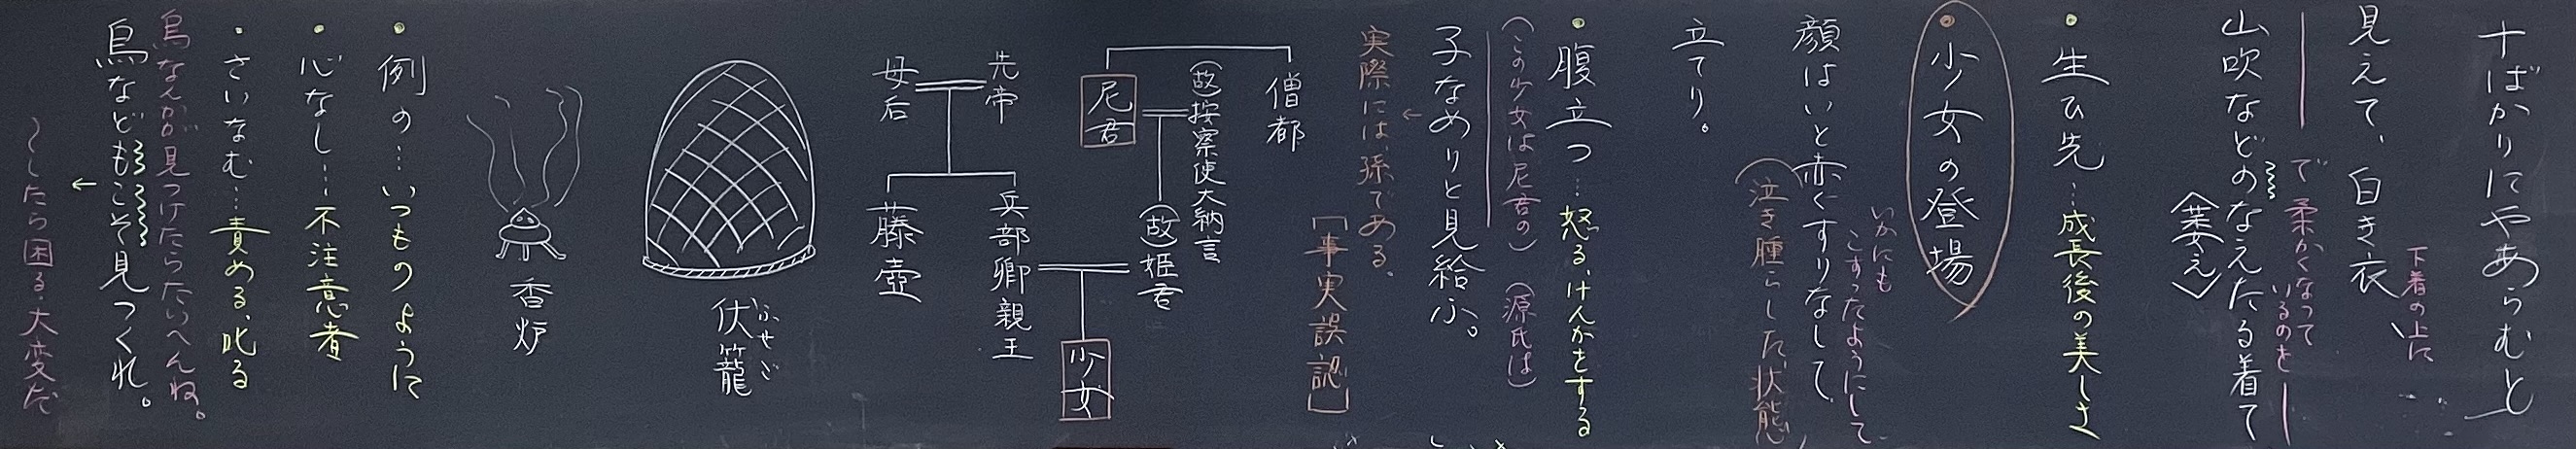 十ばかりにやあらむと
見えて、白き衣、
下着の上に
で柔かくなって
いるのを
山吹などのなえたる着て
〈萎え〉
・生ひ先…成長後の美しさ
・少女の登場
いかにも
こすったようにして、
顔はいと赤くすりなして、
(泣き腫らした状態)
立てり。
・腹立つ…怒る、けんかをする
(この少女は尼君の)(源氏は)
子なめりと見給ふ。
←
実際には、孫である、
「事実誤認」
僧都
(故)按察使大納言
尼君
(故)姫君
先帝
母后
兵部卿親王
少女
藤壺
伏籠
ふせご
香炉
・例の…いつものように
・心なし…不注意者
・さいなむ…責める、叱る
烏なんかが見つけたらたいへんね。
烏などもこそ見つくれ。
←
〜したら困る・大変だ